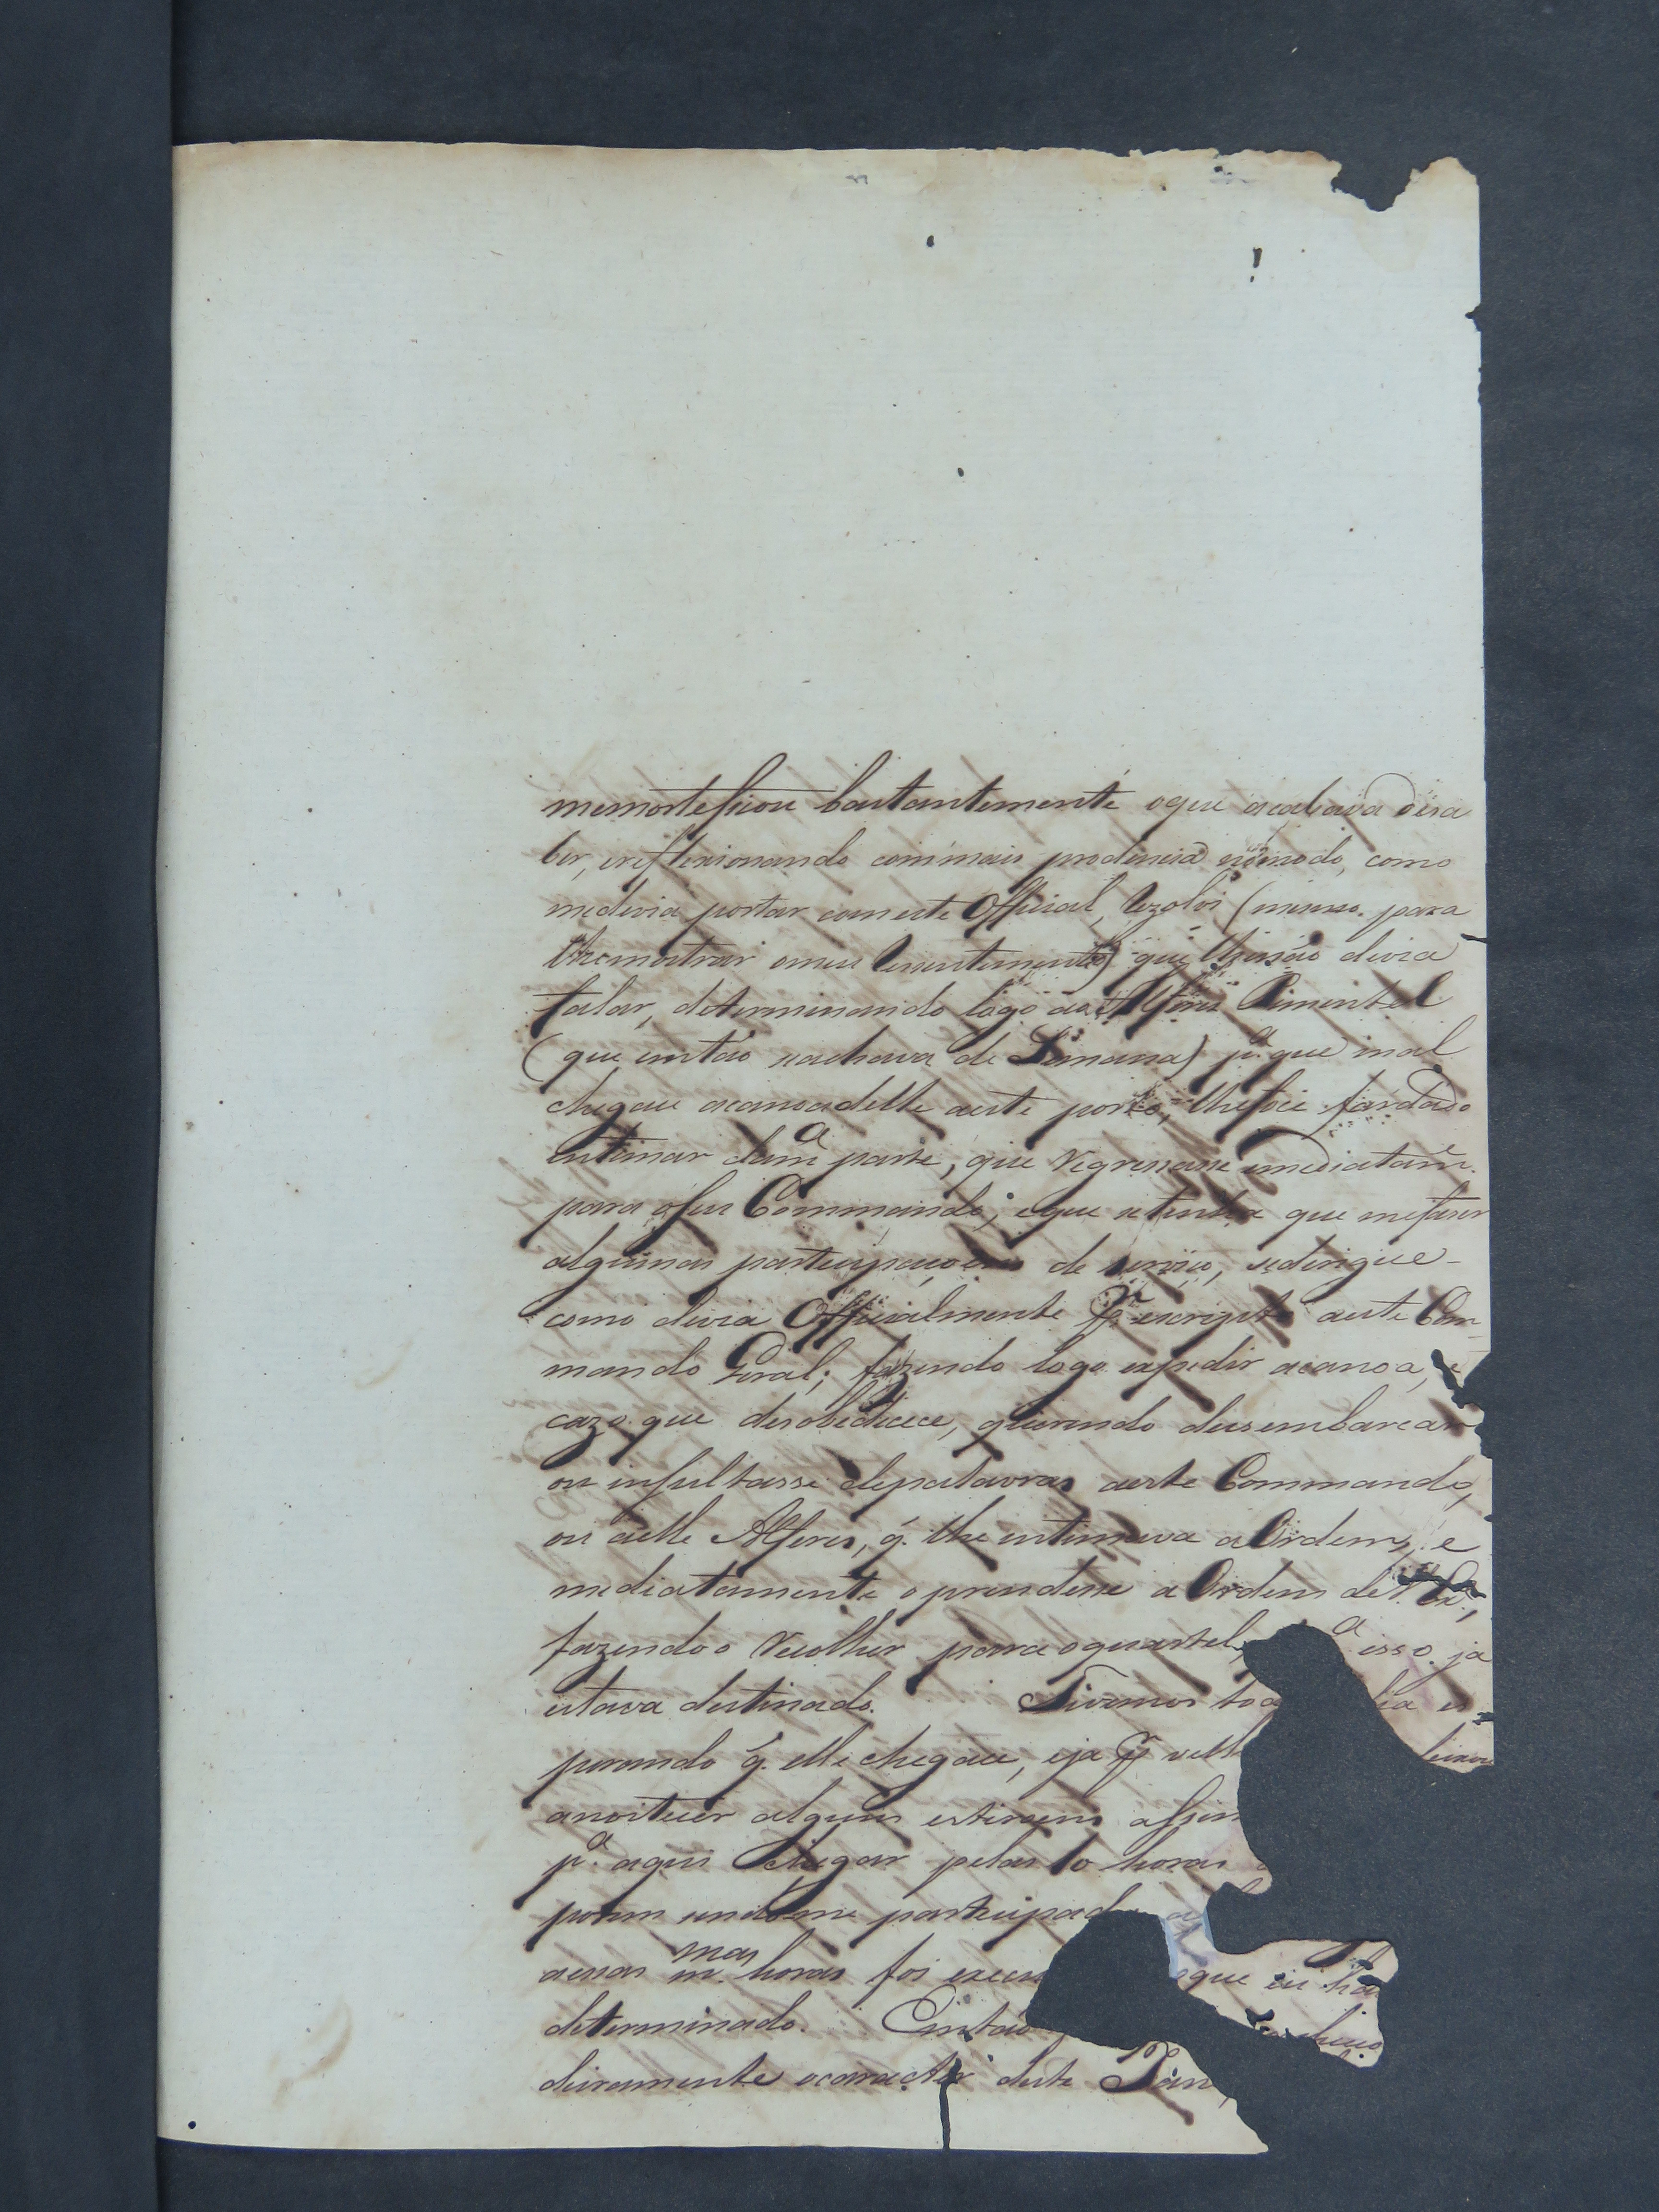 memortefficou bastantemente oque acabava desa
ber, ereflexionando commais prodencia nomodo, como
medevia portar comeste Official, Rezolvi (mesmo para
lhemostrar omeu Resentimento) que lhenão devia
falar, determinando logo ao Alferes Pimentel
(que então seachava de Semana) pa. que mal
chegace acanoadelle aeste porto, lhefoce fardado
intimar dama. parte, que Regressasse emediatame.
para oseu Commando; eque setinha que mefaser
algumas participaçoens de serviço, sedirigice
como devia Officialmente Pr escripto aeste Com-
mando Geral; fazendo logo expedir acanoa, e
cazo que desobedecece, querendo desembarcar
ou insultasse depalavras aeste Commando,
ou aelle Alferes, q. lhe intimava a Ordem, e
mediatamente oprendesse a Ordem de V. Ex.,
fazendoo Recolher para oquartel, a isso ja
estava destinado. Tivemos to dia es
perando q. elle chegace, eja Pr
anoitecer alguns estiroens assim
pa. aqui chegar pelas 10 horas
porem sendome participado
aessas mas. horas foi execu oque eu ha
determinado. Então
deiramente ocaracter deste